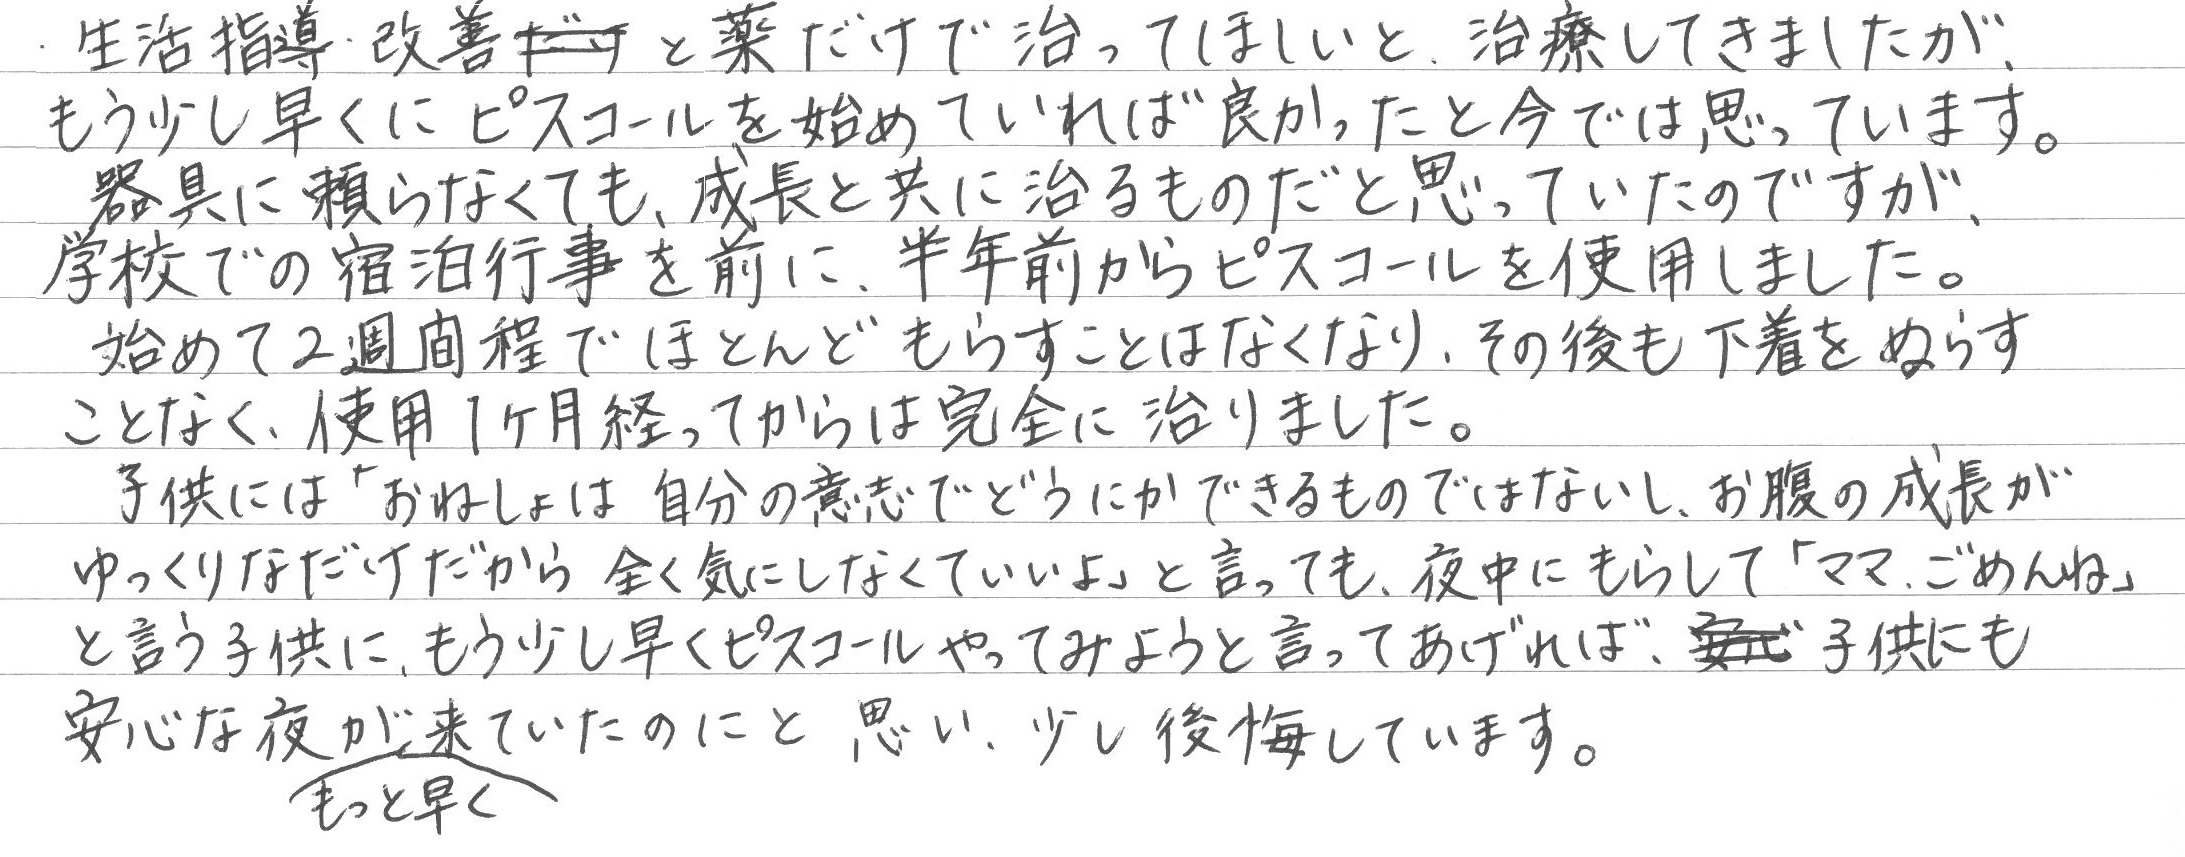 ・生活指導・改善と薬だけで治ってほしいと、治療してきましたが、
もう少し早くにピスコールを始めていれば良かったと今では思っています。
器具に頼らなくても、成長と共に治るものだと思っていたのですが、
学校での宿泊行事を前に、半年前からピスコールを使用しました。
始めて2週間程でほとんどもらすことはなくなり、その後も下着をぬらす
ことなく、使用1ヶ月経ってからは完全に治りました。
子供には「おねしょは自分の意志でどうにかできるものではないし、お腹の成長が
ゆっくりなだけだから全く気にしなくていいよ」と言っても、夜中にもらして「ママ、ごめんね」
と言う子供に、もう少し早くピスコールやってみようと言ってあげれば、子供にも
安心な夜が来ていたのにと思い、少し後悔しています。
もっと早く